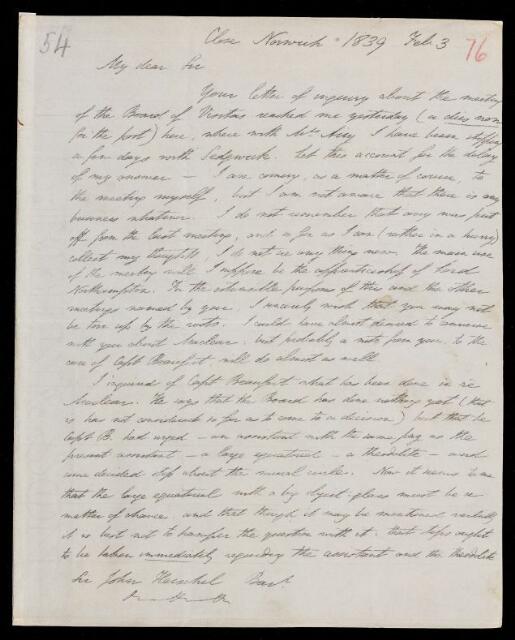 54
Close Norwich 1839 Feb 3
76
My dear Sir
Your letter of inquiry about the meeting
of the Board of Visitors reached me yesterday (a dies non
for the post) here, where with Mrs Airy I have been staying
a few days with Sedgwick. Let this account for the delay
of my answer — I am coming, as a matter of course, to
the meeting myself, but I am not aware that there is any
business whatever. I do not remember that any was put
off from the last meeting, and as far as I can (rather in a hurry)
collect my thoughts, I do not see any thing new. The main use
of the meeting will I suppose be the apprenticeship of Lord
Northampton. In the estimable purpose of this and the other
meetings named by you, I sincerely wish that you may not
be torn up by the roots. I could have almost desired to converse
with you about Maclear, but probably a note from you to the
care of Capt Beaufort will do almost as well.
I inquired of Capt Beaufort what has been done in re
Maclear. He says that the Board has done nothing yet (that
is has not considered so far as to come to a decision) but that he
Capt B. had urged — an assistant with the same pay as the
present assistant — a large equatorial — a theodolite — and
some decided step about the mural circle. Now it seems to me
that the large equatorial with a big object-glass must be a
matter of chance, and that though it may be mentioned verbally
it is best not to hamper the question with it: that steps ought
to be taken immediately regarding the assistant and the theodolite
Sir John Herschel Bart